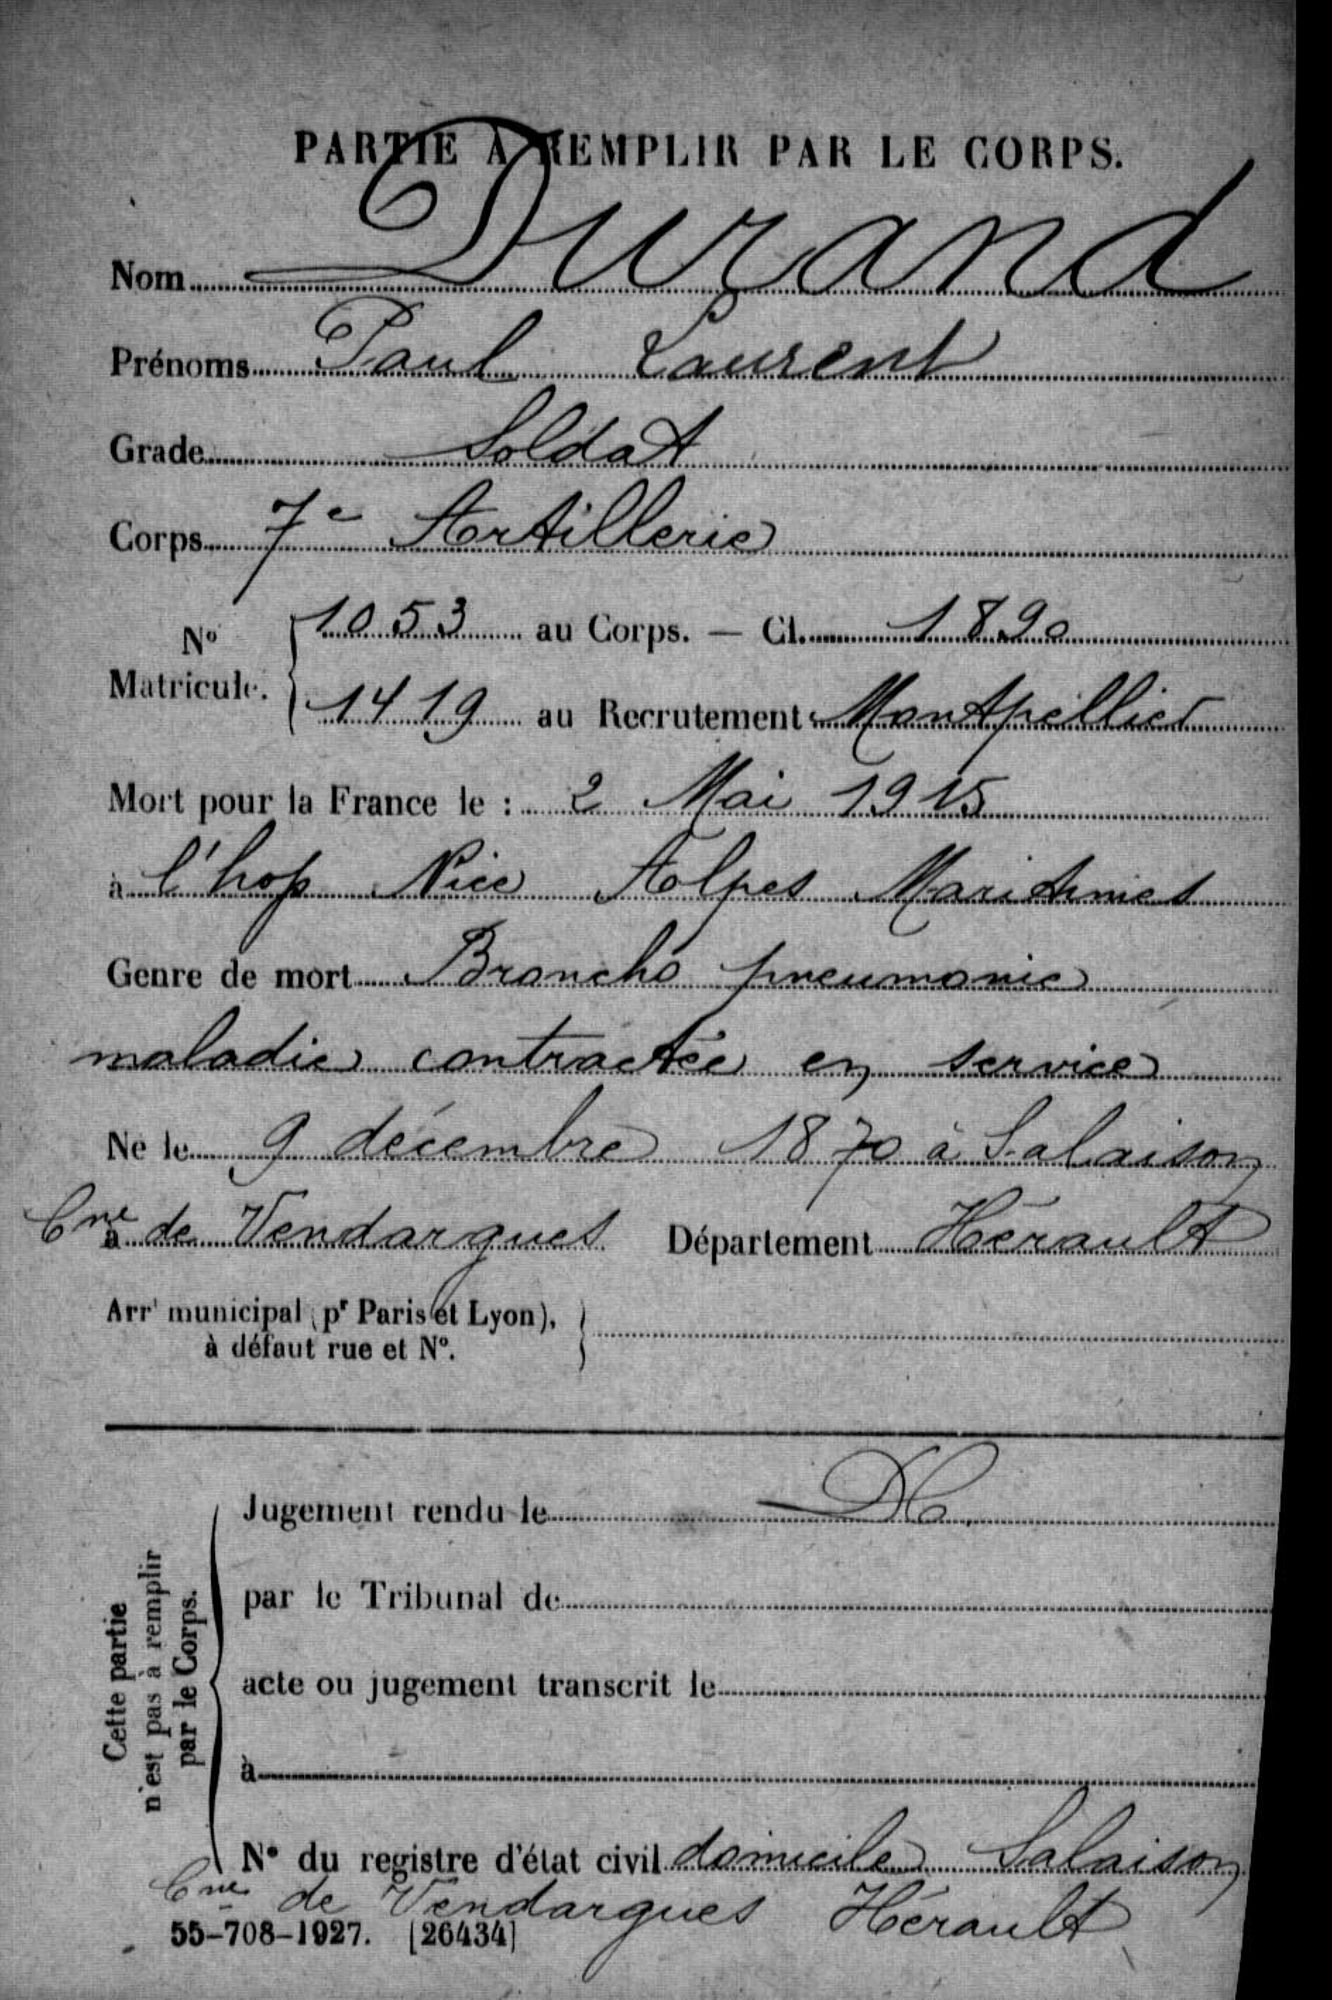 PARTIE À REMPLIR PAR LE CORPS.
Nom Durand
Prénoms Paul Laurent
Grade Soldat
Corps 7e Artillerie
No Matricule. 1053 au Corps. — Cl. 1890
1419 au Recrutement Montpellier
Mort pour la France le : 2 Mai 1915
à l'hop Nice Alpes Maritimes
Genre de mort Broncho pneumonie
maladie contractée en service
Né le 9 décembre 1870 à Salaison
Cne à de Vendargues Département Hérault
Arrt municipal (pr Paris et Lyon),
à défaut rue et No.
Cette partie
n'est pas à remplir
par le Corps.
Jugement rendu le
par le Tribunal de
acte ou jugement transcrit le
à
No du registre d'état civil domicile Salaison
Cne de Vendargues Hérault
55-708-1927. [26434]